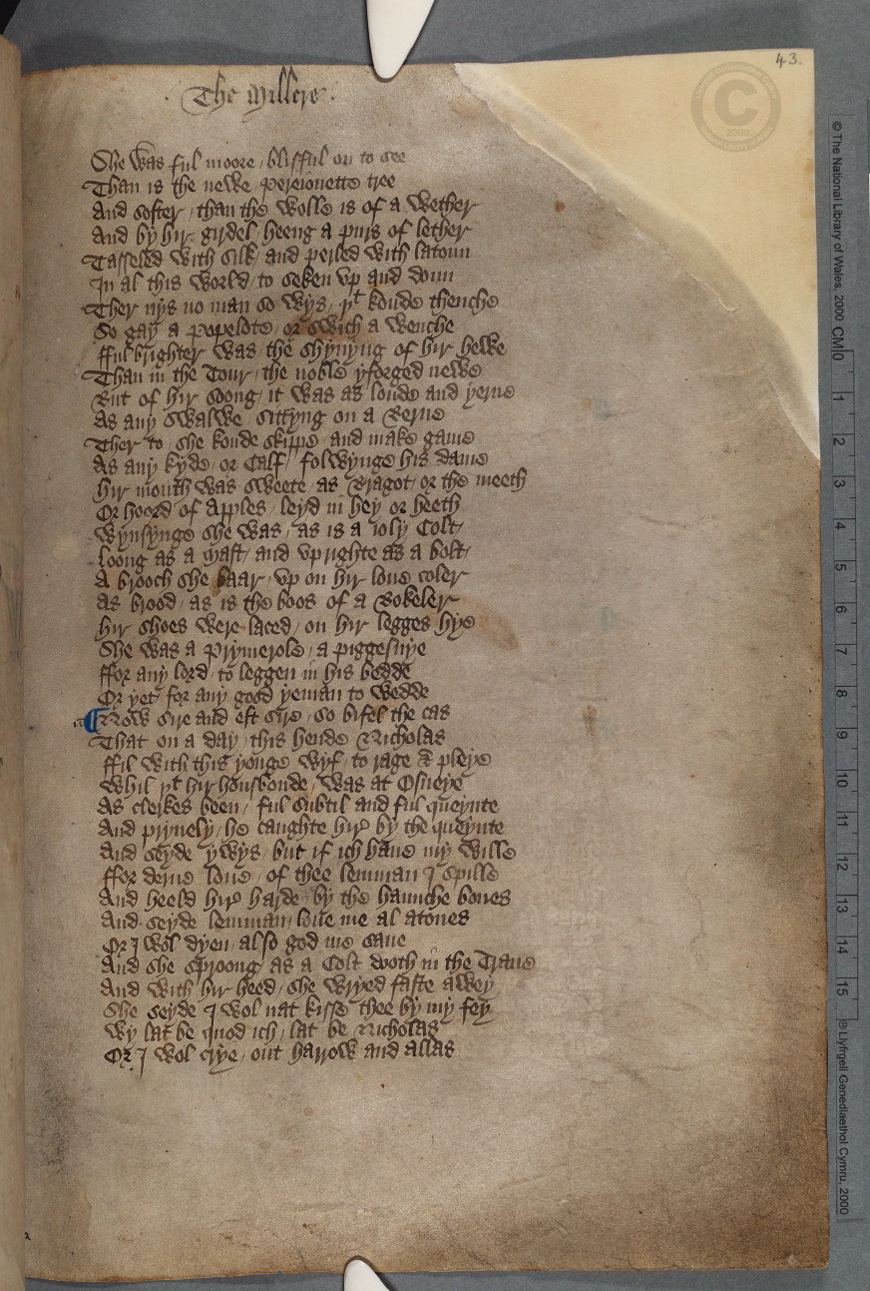 43.
The Millere
She was ful moore / blisful on to see
Than is the newe / pereionette tree
And softer / than the wolle is of a wether
And by hir girdel / heeng a purs of lether
Tasseled with silk / and perled with latoun
In al this world / to seken vp and doun
Ther nys no man so wys / yt koude thenche
So gay a popelote / or swich a wenche
fful brighter was / the shynyng of hir hewe
Than in the Tour / the noble yforged newe
But of hir soong / it was as loude and yerne
As any swalwe / sittyng on a Berne
Ther to / she koude skippe / and make game
As any kyde / or Calf / folwynge his dame
Hir mouth was sweete / as Bragot / or the meeth
Or hoord of Apples / leyd in hey or heeth
Wynsynge she was / as is a ioly Colt
Loong as a Mast / and vprighte as a bolt
A brooch she baar / vp on hir loue coler
As brood / as is the boos of a Bokeler
Hir shoes were laced / on hir legges hye
She was a prymerole / a piggesnye
ffor any lord / to leggen in his bedde
Or yet / for any good yeman to wedde
Now sire and eft sire / so bifel the cas
That on a day / this hende Nicholas
ffil with this yonge wyf / to rage & pleye
Whil yt hir housbonde / was at Osneye
As clerkes been / ful subtil and ful queynte
And pryuely / he caughte hire by the queynte
And seyde ywys / but if ich haue my wille
ffor derne loue / of thee lemman I spille
And heeld hire harde / by the haunche bones
And seyde lemman / loue me al atones
Or I wol dyen / also god me saue
And she sproong / as a Colt dooth in the Traue
And with hir heed / she wryed faste awey
She seyde I wol nat kisse thee by my fey
Wy lat be quod ich / lat be Nicholas
Or I wol crye / out harrow and allas
© The National Library of Wales, 2000
CM 0 1 2 3 4 5 6 7 8 9 10 11 12 13 14 15
© Llyfrgell Genedlaethol Cymru, 2000
C
2000